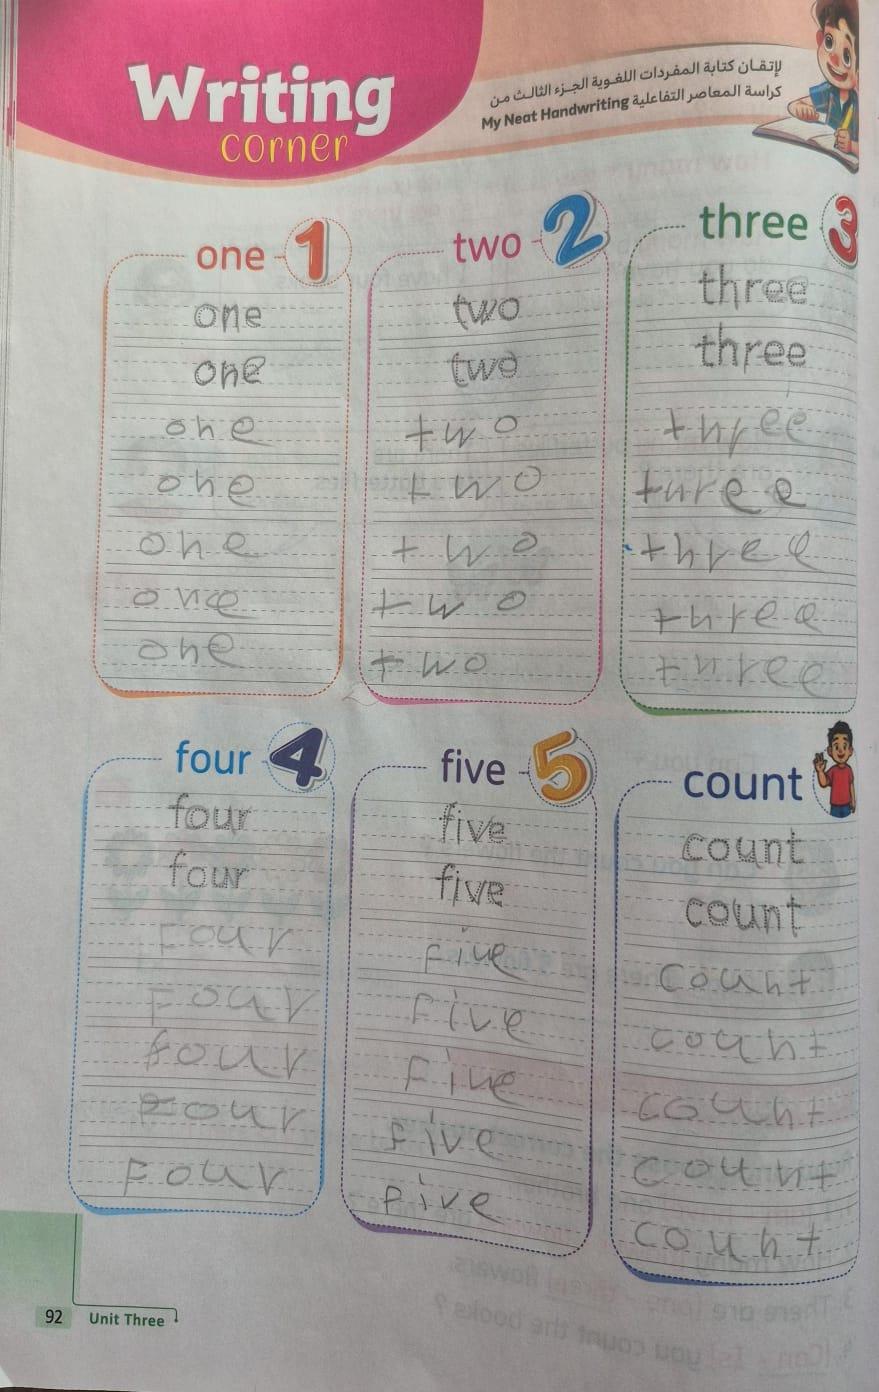 Writing
corner
لإتقان كتابة المفردات اللغوية الجزء الثالث من
كراسة المعاصر التفاعلية My Neat Handwriting
one 1
one
one
one
one
one
one
one
two 2
two
two
two
two
two
two
two
three 3
three
three
three
three
three
three
three
four 4
four
four
Four
Four
four
Four
Four
five 5
five
five
Five
Five
Five
five
five
count
count
count
count
count
count
count
count
92 Unit Three